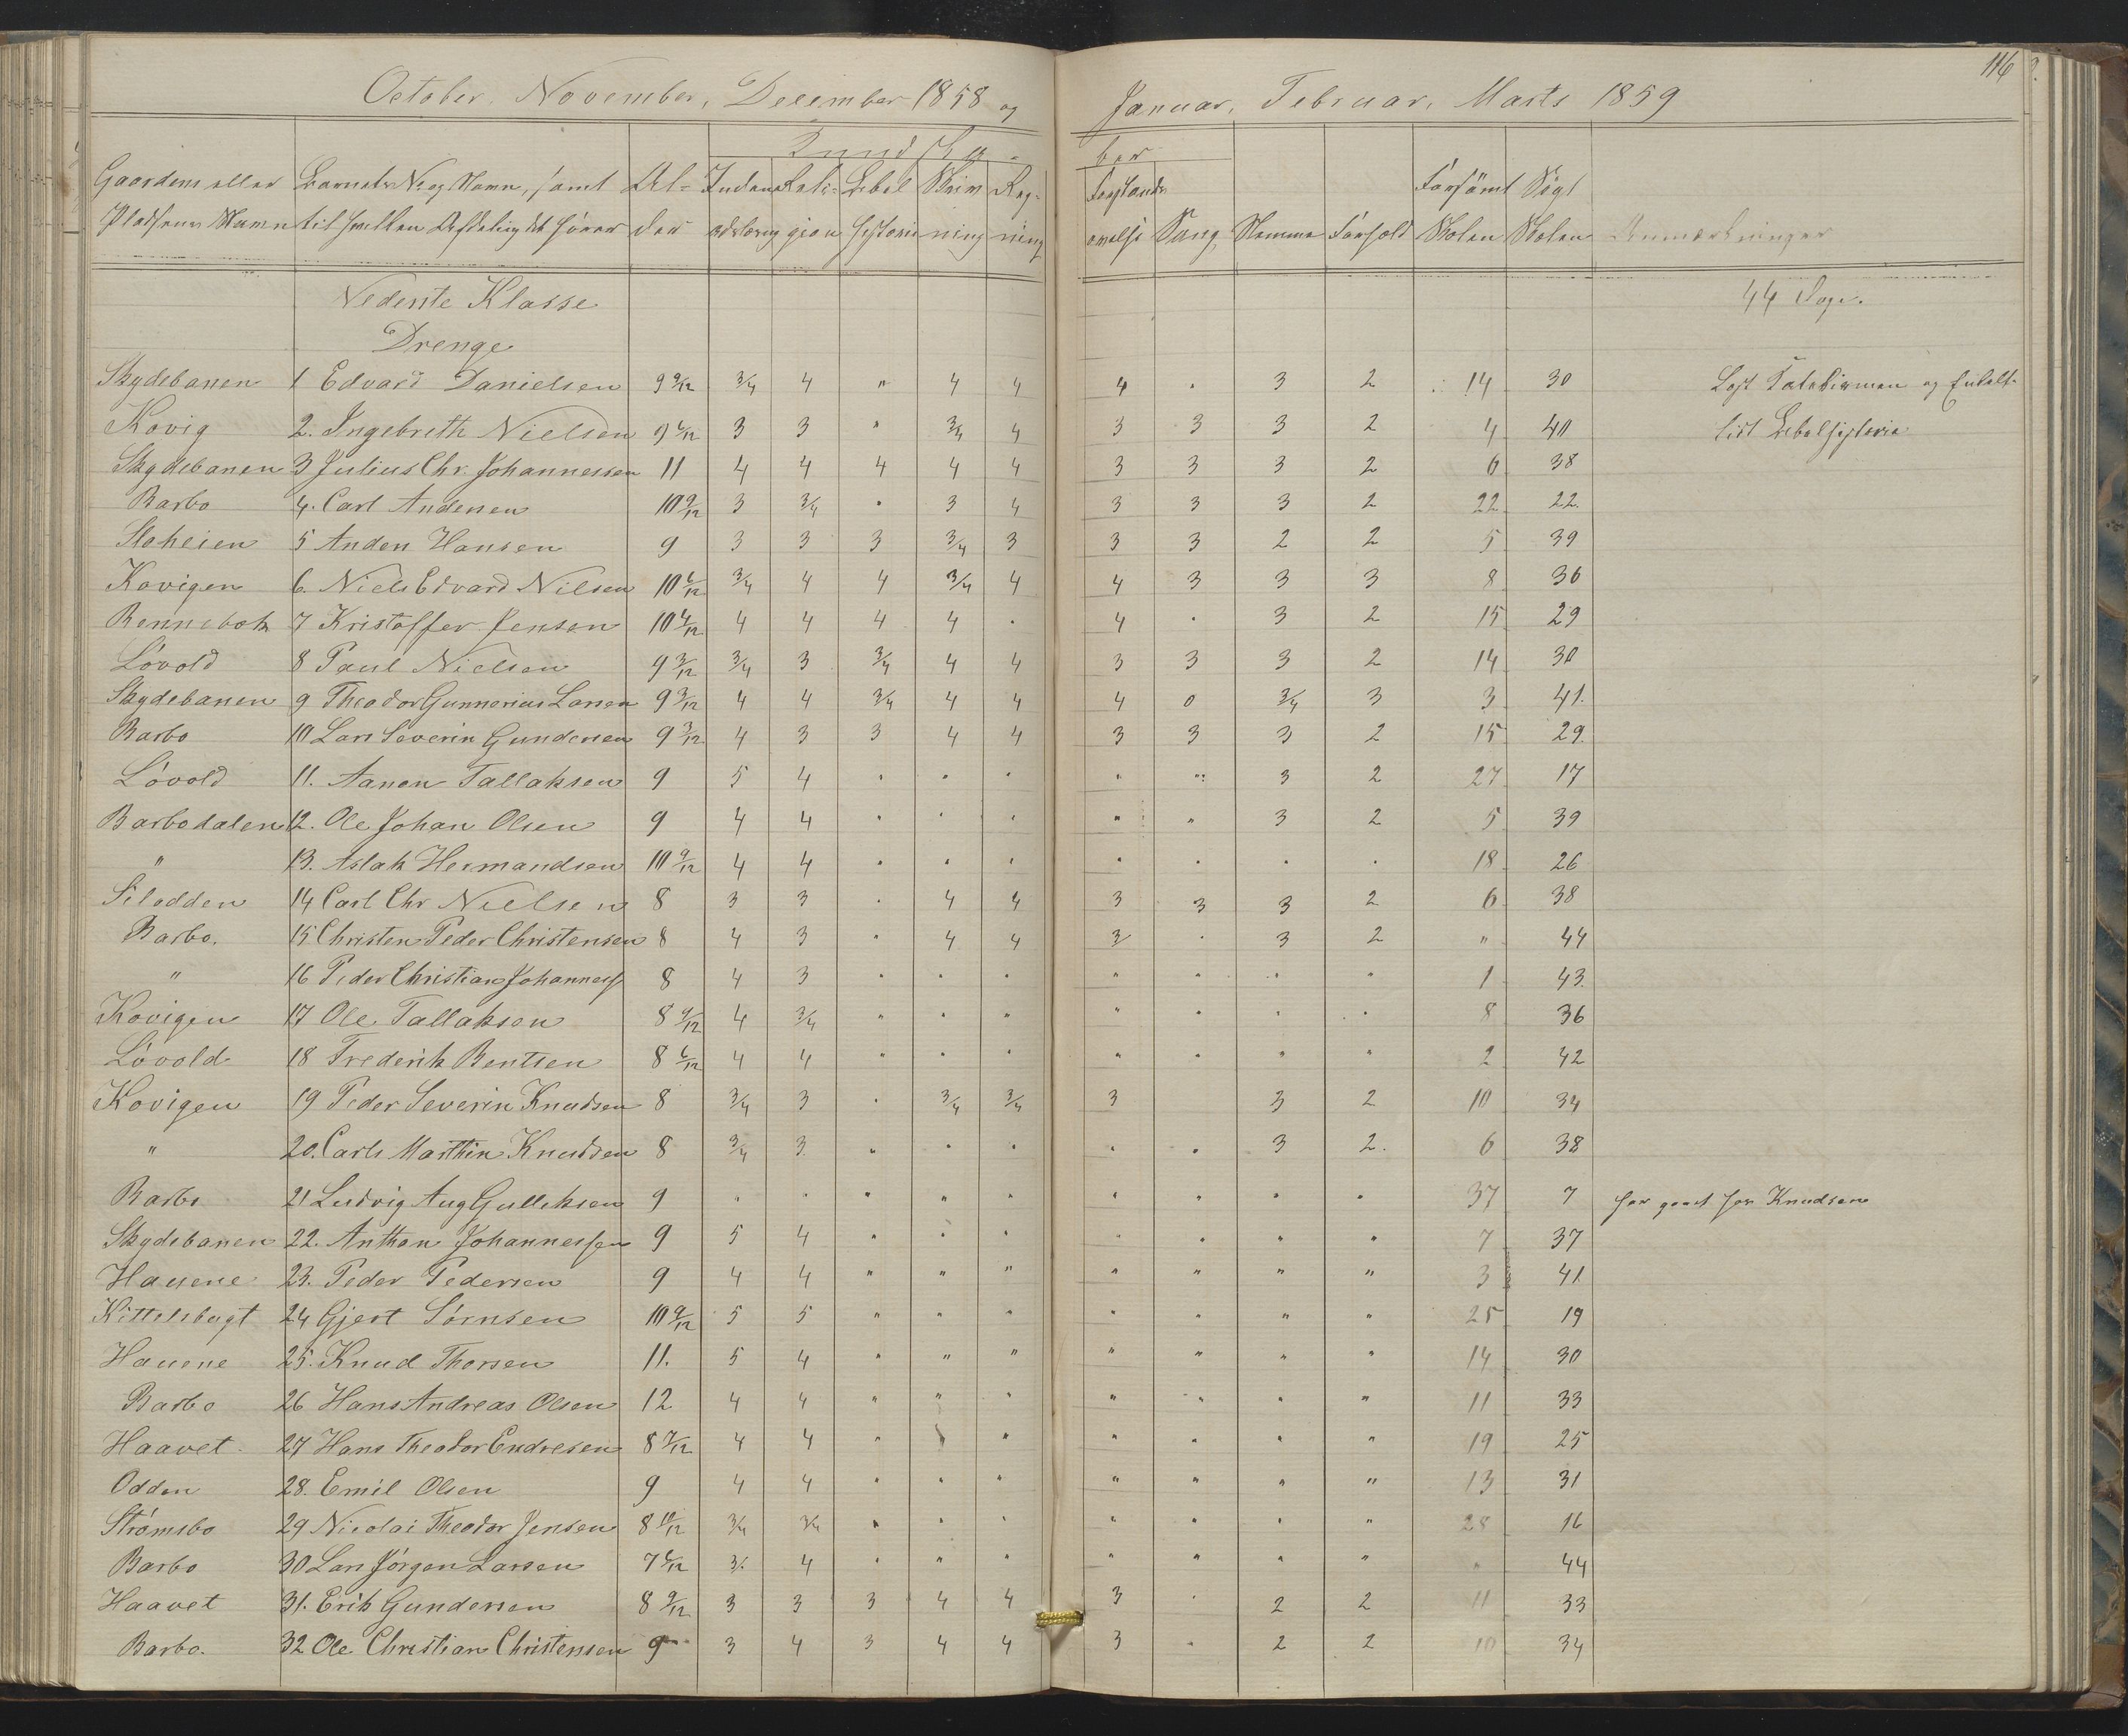 116
October, November, December 1858 og Januar, Februar, Marts 1859
Kundskaber
Gaardens eller Barnets No og Navn, samt Al- Indenad Reli- Bibel Skriv Reg- Forstands Forsömt Sögt
Pladsens Navn til hvilken Afdeling det hörer der læsning gion historie ning ning övelse Sang Stemme Forhold Skolen Skolen Anmærkninger
Nederste Klasse 44 Dage.
Drenge
Skydebanen 1 Edvard Danielsen 9 9/12 3/4 4 " 4 4 4 " 3 2 14 30 Læst Katekismen og Enkelt-
Kovig 2. Ingebreth Nielsen 9 6/12 3 3 " 3/4 4 3 3 3 2 4 40 lidt Bibelhistorie
Skydebanen 3 Julius Chr. Johannessen 11 4 4 4 4 4 3 3 3 2 6 38
Barbo 4. Carl Andersen 10 9/12 3 3/4 " 3 4 3 3 3 2 22 22
Sloheien 5 Anders Hansen 9 3 3 3 3/4 3 3 3 2 2 5 39
Kovigen 6. Niels Edvard Nilsen 10 6/12 3/4 4 4 3/4 4 4 3 3 3 8 36
Rennebok 7 Kristoffer Jensen 10 6/12 4 4 4 4 " 4 " 3 2 15 29
Lövold 8 Paul Nielsen 9 3/12 3/4 3 3/4 4 4 3 3 3 2 14 30
Skydebanen 9 Theodor Gunnerius Larsen 9 3/12 4 4 3/4 4 4 4 0 3/4 3 3 41.
Barbo 10 Lars Severin Gundersen 9 3/12 4 3 3 4 4 3 3 3 2 15 29.
Lövold 11. Aanon Tallaksen 9 5 4 " " " " " 3 2 27 17
Barbodalen 12. Ole Johan Olsen 9 4 4 " " " " " 3 2 5 39
" 13. Aslak Hermandsen 10 9/12 4 4 " " " " " " " 18 26
Silodden 14 Carl Chr Nielsen 8 3 3 " 4 4 3 3 3 2 6 38
Barbo. 15 Christen Peder Christensen 8 4 3 " 4 4 3 " 3 2 " 44
" 16 Peder Christian Johanness 8 4 3 " " " " " " " 1 43.
Kovigen 17 Ole Tallaksen 8 9/12 4 3/4 " " " " " " " 8 36
Lövold 18 Frederik Bentsen 8 6/12 4 4 " " " " " " " 2 42
Kovigen 19 Peder Severin Knudsen 8 3/4 3 " 3/4 3/4 3 3 2 10 34
" 20. Carls Marthin Knudsen 8 3/4 3 " " " " " 3 2. 6 38
Barbo 21 Ludvig Aug Gulleksen 9 " " " " " " " " " 37 7 har gaaet hos Knudsen
Skydebanen 22. Anthon Johannessen 9 5 4 " " " " " " " 7 37
Hauene 23. Peder Pedersen 9 4 4 " " " " " " " 3 41
Kittelsbugt 24 Gjert Sörnsen 10 9/12 5 5 " " " " " " " 25 19
Hauene 25. Knud Thorsen 11. 5 4 " " " " " " " 14 30
Barbo 26 Hans Andreas Olsen 12 4 4 " " " " " " " 11 33
Haavet 27 Hans Theodor Endresen 8 7/12 4 4 " " " " " " " 19 25
Odden 28. Emil Olsen 9 4 4 " " " " " " " 13 31
Strömsbo 29 Nicolai Theodor Jensen 8 10/12 3/4 3/4 " " " " " " " 28 16
Barbo 30 Lars Jörgen Larsen 7 6/12 3. 4 " " " " " " " " 44
Haavet 31. Erik Gundersen 8 9/12 3 3 3 4 4 3 " 2 2 11 33
Barbo. 32 Ole Christian Christensen 9 3 4 3 4 4 3 " 2 2 10 34